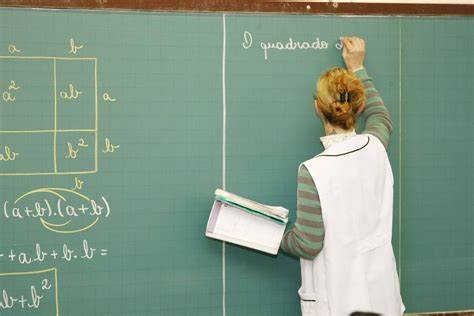 a b
a² ab a
ab b² b
b
(a+b).(a+b)
+a.b+b.b=
ab + b²
O quadrado